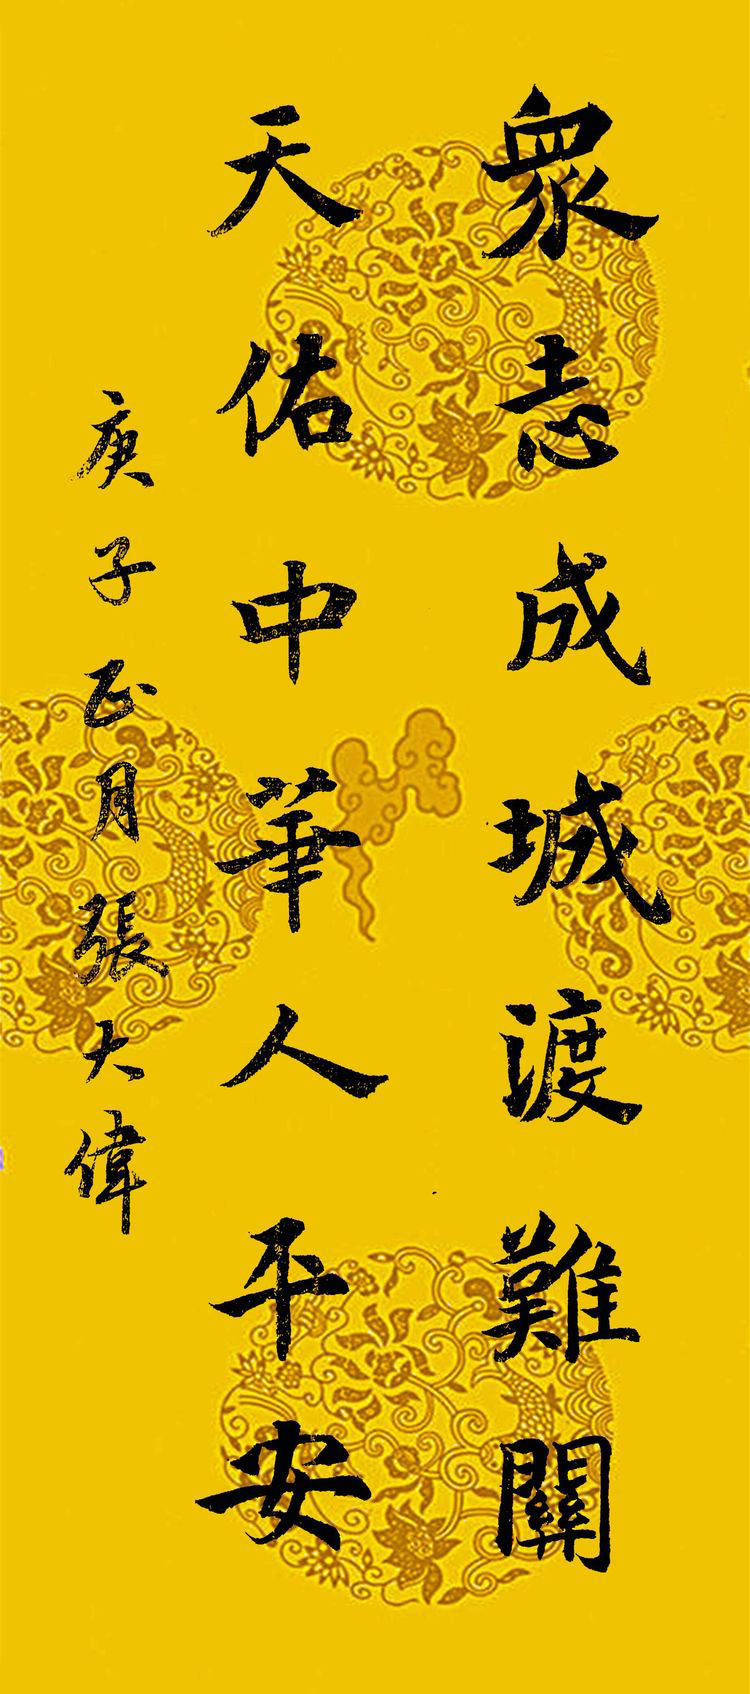 眾志成城渡難關
天佑中華人平安
庚子正月張大偉